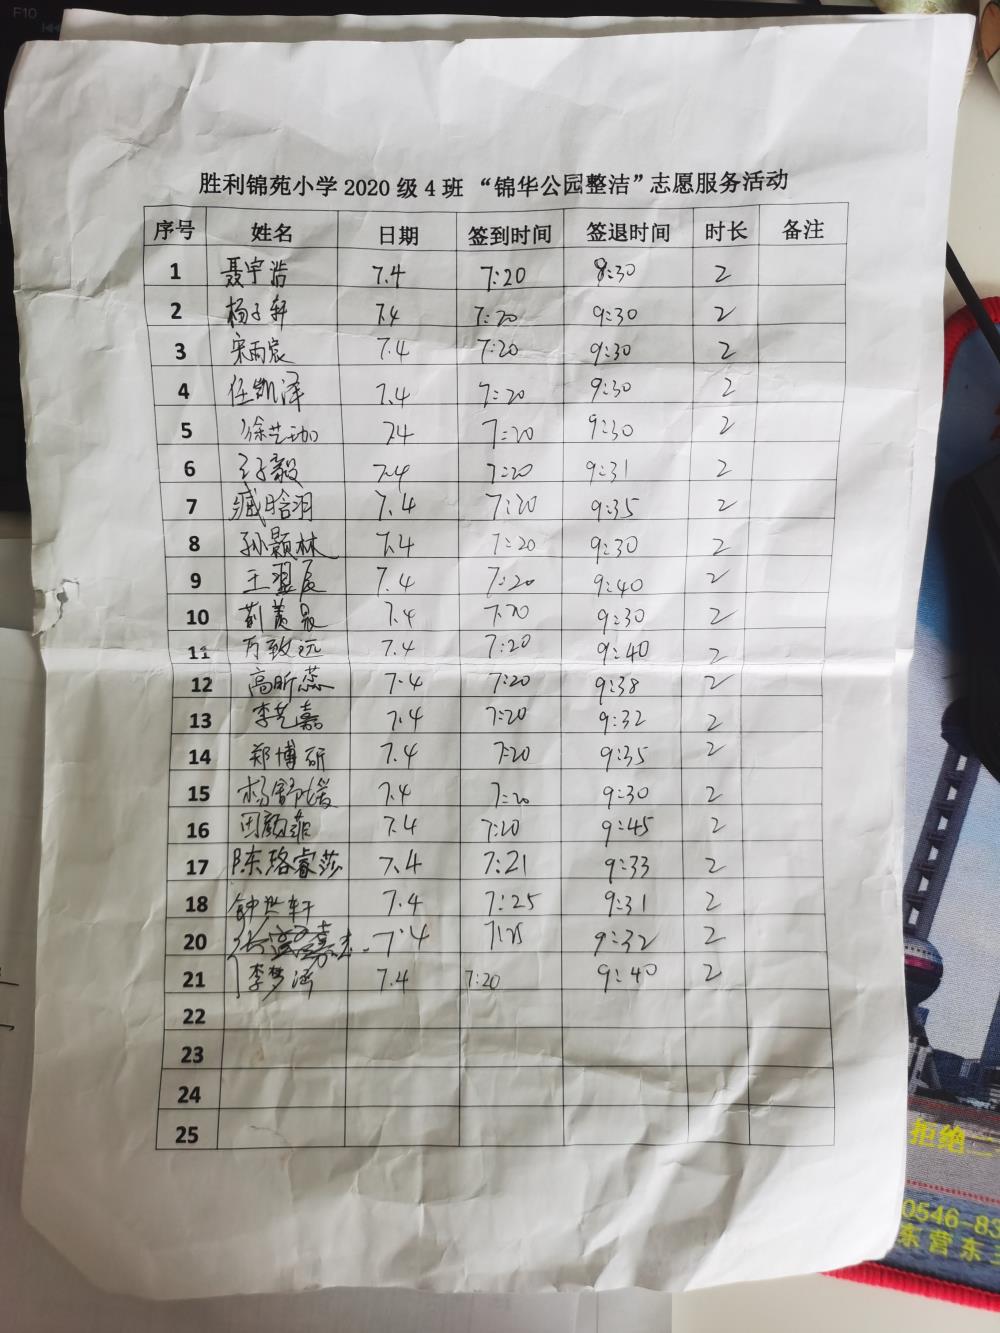 F10
胜利锦苑小学 2020 级 4 班 “锦华公园整洁”志愿服务活动
序号 姓名 日期 签到时间 签退时间 时长 备注
1 聂宇浩 7.4 7:20 8:30 2
2 杨子轩 7.4 7:20 9:30 2
3 宋雨宸 7.4 7:20 9:30 2
4 任凯泽 7.4 7:20 9:30 2
5 徐艺珈 7.4 7:20 9:30 2
6 王子毅 7.4 7:20 9:31 2
7 臧晗羽 7.4 7:20 9:35 2
8 孙颢林 7.4 7:20 9:30 2
9 王翌辰 7.4 7:20 9:40 2
10 7.4 7:20 9:30 2
11 万致远 7.4 7:20 9:40 2
12 高昕蕊 7.4 7:20 9:38 2
13 李艺嘉 7.4 7:20 9:32 2
14 郑博研 7.4 7:20 9:35 2
15 杨舒媛 7.4 7:20 9:30 2
16 田颜菲 7.4 7:20 9:45 2
17 陈珞睿莎 7.4 7:21 9:33 2
18 钟世轩 7.4 7:25 9:31 2
20 7.4 7:25 9:32 2
21 李梦涵 7.4 7:20 9:40 2
22
23
24
25
拒绝二
0546-83
东营东三